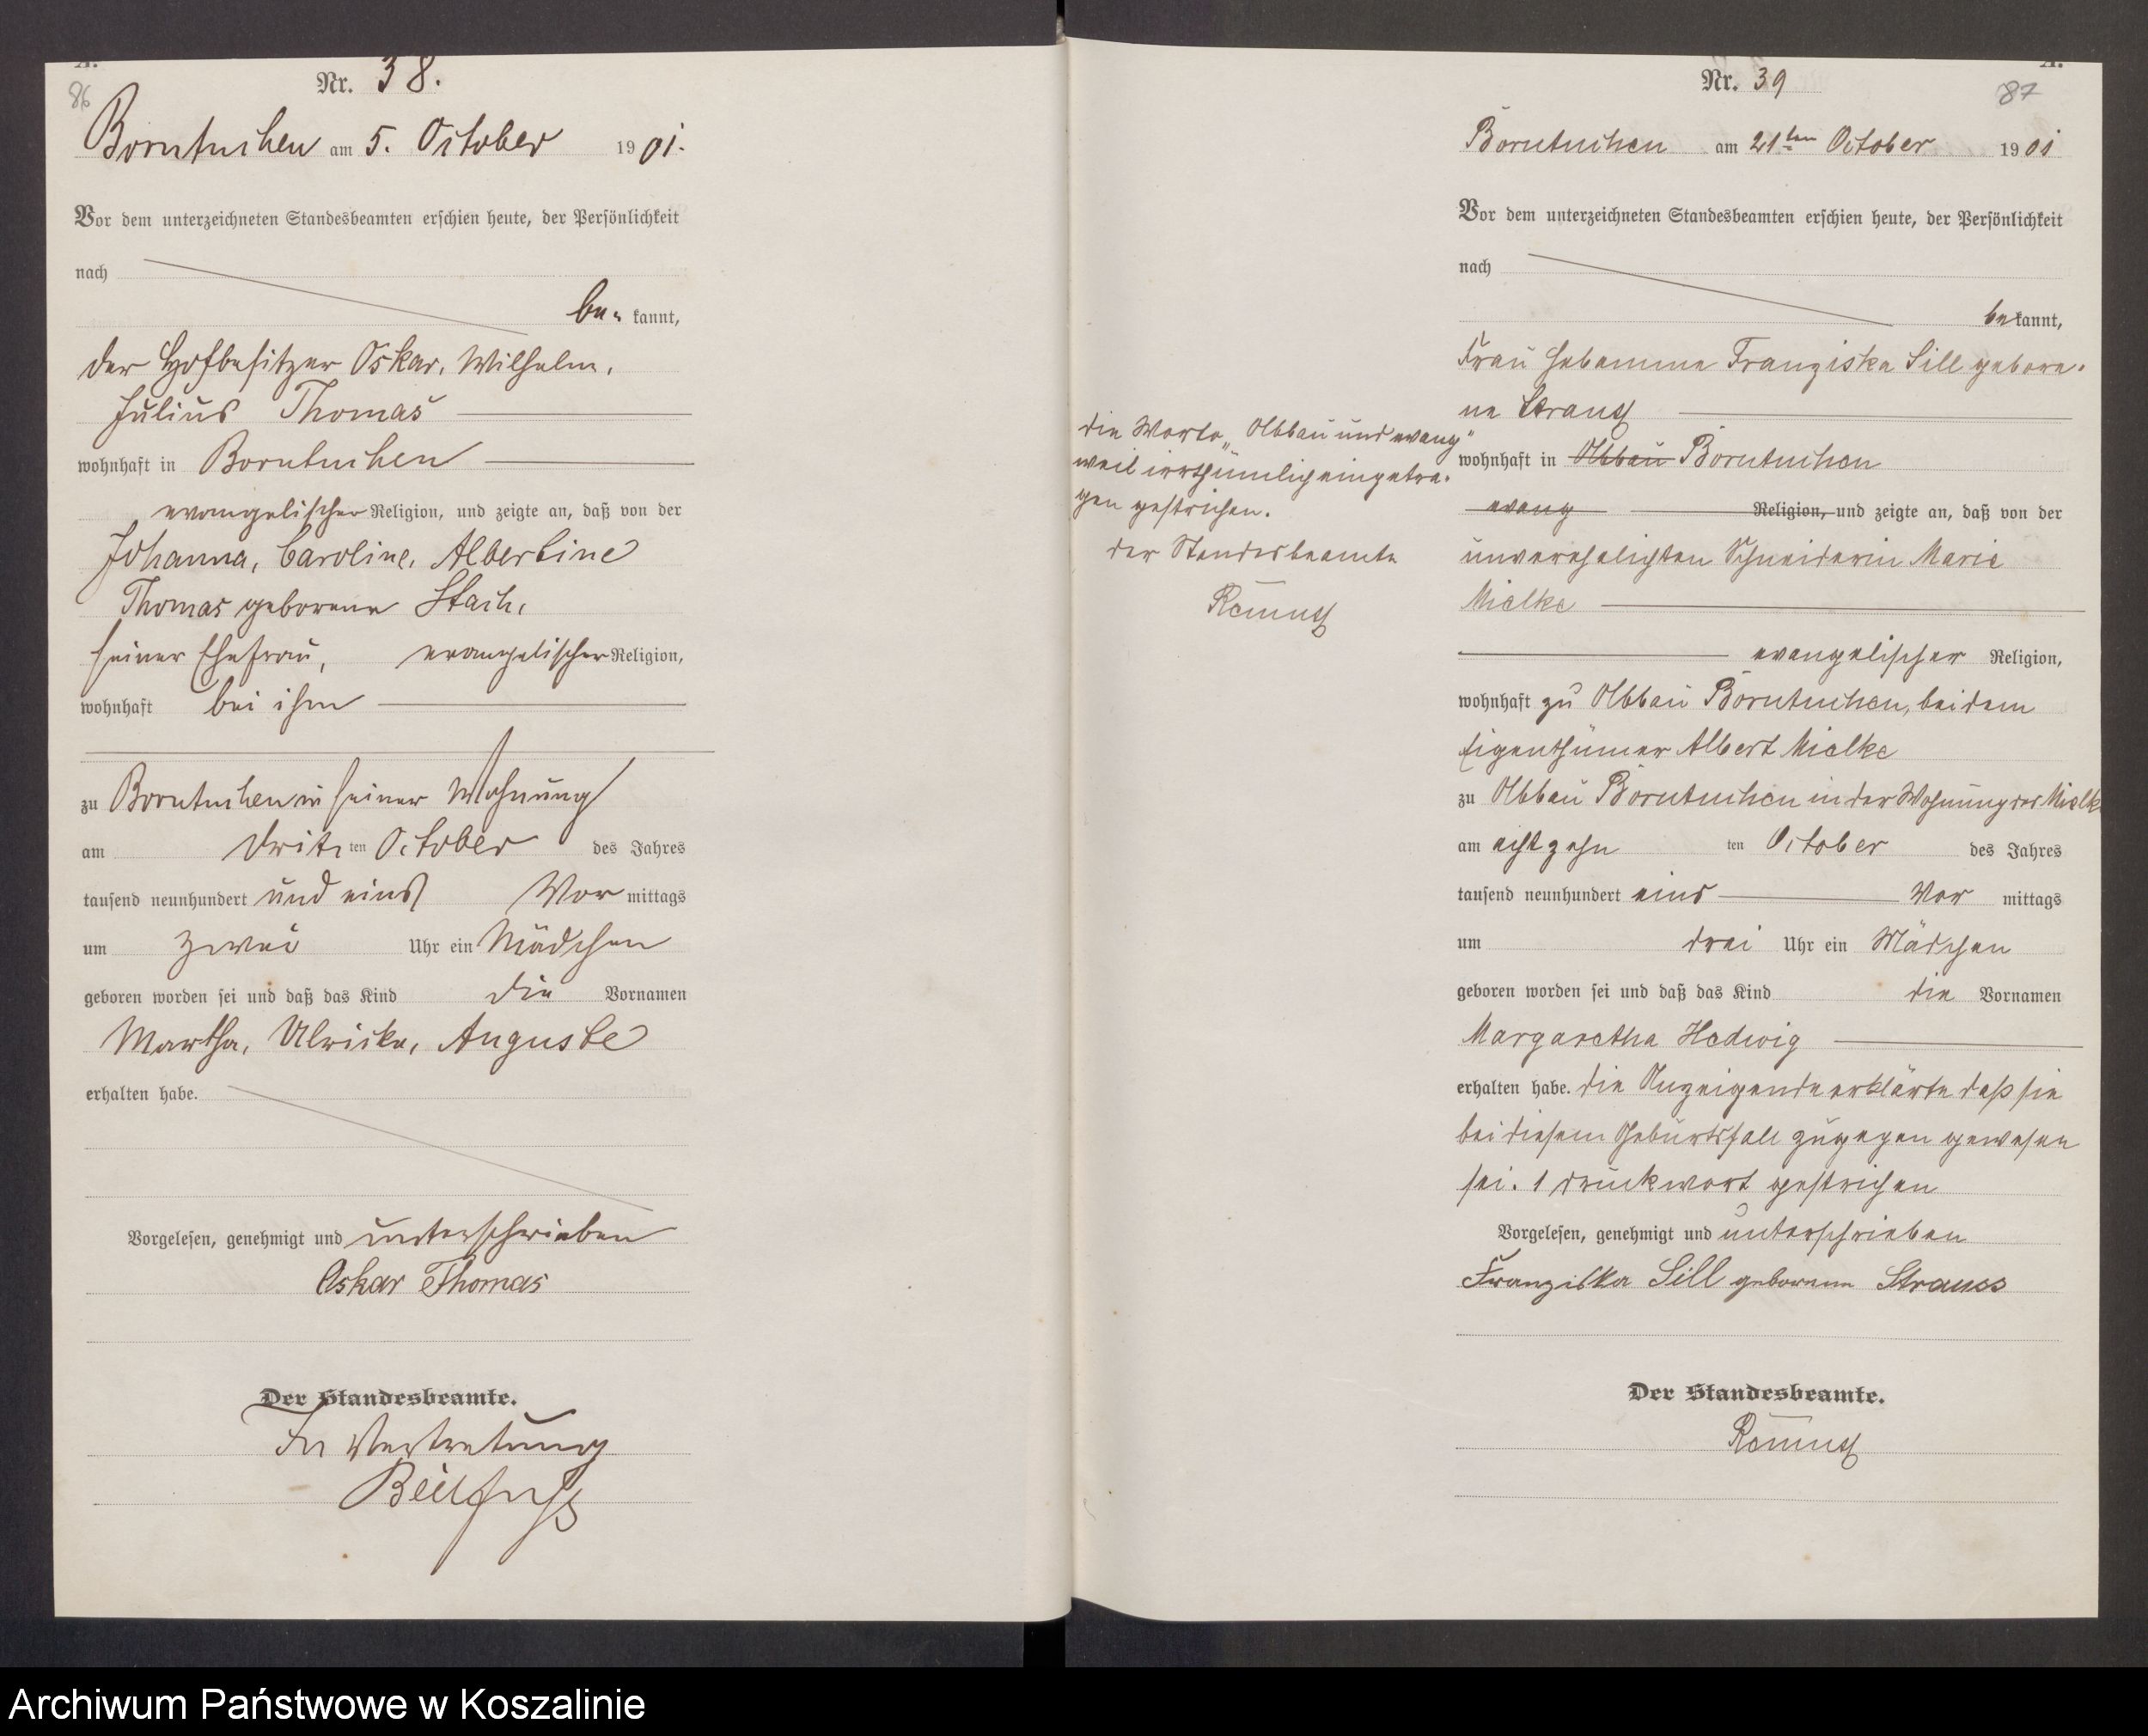 A.
86
Nr. 38.
Borntuchen am 5. October 1901.
Vor dem unterzeichneten Standesbeamten erschien heute, der Persönlichkeit
nach
be= kannt,
der Hofbesitzer Oskar, Wilhelm,
Julius Thomas
wohnhaft in Borntuchen
evangelischer Religion, und zeigte an, daß von der
Johanna, Caroline, Albertine
Thomas geborene Stach,
seiner Ehefrau, evangelischer Religion,
wohnhaft bei ihm
zu Borntuchen in seiner Wohnung
am dritt ten October des Jahres
tausend neunhundert und eins Vor mittags
um zwei Uhr ein Mädchen
geboren worden sei und daß das Kind die Vornamen
Martha, Ulricke, Auguste
erhalten habe.
Vorgelesen, genehmigt und unterschrieben
Oskar Thomas
Der Standesbeamte.
In Vertretung
Beilfuß
die Worte „Abbau und evang“
weil irrthümlich eingetra-
gen gestrichen.
der Standesbeamte
Remus
A.
Nr. 39
87
Borntuchen am 21ten October 1901
Vor dem unterzeichneten Standesbeamten erschien heute, der Persönlichkeit
nach
bekannt,
Frau Hebamme Franziska Sill gebore-
ne Strauss
wohnhaft in Abbau Borntuchen
evang Religion, und zeigte an, daß von der
unverehelichten Schneiderin Marie
Mielke
evangelischer Religion,
wohnhaft zu Abbau Borntuchen, bei dem
Eigenthümer Albert Mielke
zu Abbau Borntuchen in der Wohnung des Mielk
am achtzehn ten October des Jahres
tausend neunhundert eins Vor mittags
um drei Uhr ein Mädchen
geboren worden sei und daß das Kind die Vornamen
Margaretha Hedwig
erhalten habe. die Anzeigende erklärte daß sie
bei diesem Geburtsfall zugegen gewesen
sei. 1 druckwort gestrichen
Vorgelesen, genehmigt und unterschrieben
Franziska Sill geborene Strauss
Der Standesbeamte.
Remus
Archiwum Państwowe w Koszalinie